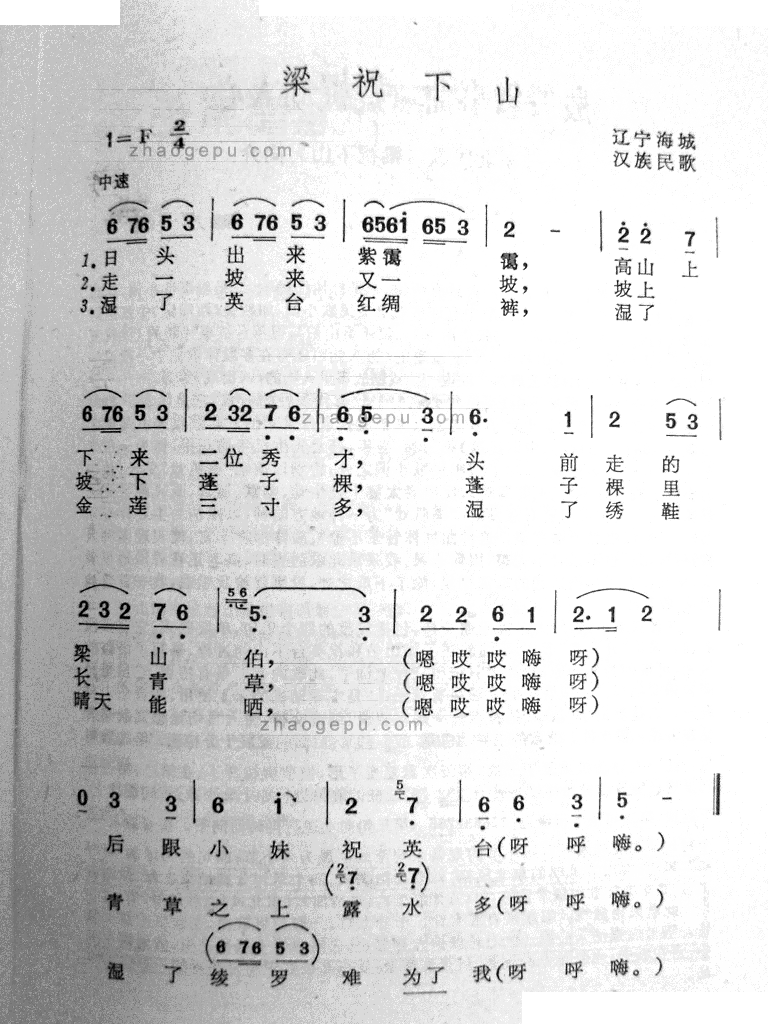 梁祝下山
1=F 2/4
辽宁海城
汉族民歌
zhaogepu.com
中速
6 76 5 3 | 6 76 5 3 | 6561 65 3 | 2 - | 2 2 7
1.日头出来紫霭霭，高山上
2.走一坡来又一坡，坡上
3.湿了英台红绸裤，湿了
6 76 5 3 | 2 32 7 6 | 6 5 3 | 6. 1 | 2 5 3
zhaogepu.com
下来二位秀才，头前走的
坡下蓬子棵，蓬子棵里
金莲三寸多，湿了绣鞋
2 3 2 7 6 | 56 5. 3 | 2 2 6 1 | 2. 1 2
梁山伯，(嗯哎哎嗨呀)
长青草，(嗯哎哎嗨呀)
晴天能晒，(嗯哎哎嗨呀)
zhaogepu.com
0 3 3 | 6 1 | 2 5 7 | 6 6 3 | 5 -
后跟小妹祝英台(呀呼嗨。)
(2 7 2 7)
青草之上露水多(呀呼嗨。)
(6 76 5 3)
湿了绫罗难为了我(呀呼嗨。)